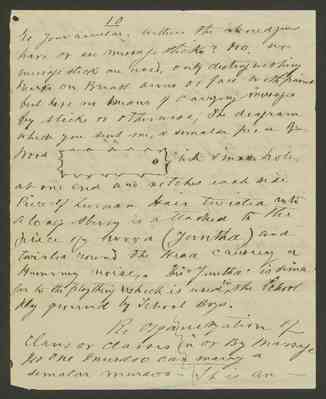 10
Re Your circular, where the aborigines
have or use message sticks? No, no
message stick are used, only distinguishing
marks on Breast arms or face with pains
but have no means of Carrying messages
by sticks or otherwise, The diagram
which you sent me, a similar piece of
Wood with small hole
at one end and notches each side
Piece of human Hair twisted into
a long string is attached to the
piece of wood (Juntha) and
twisted round the head causing a
Humming noise, This "Juntha" is simi-
lar to the plaything which is used in the School
play ground by School Boys.
Re Organization of
Clans or classes in or by Marriage
No one murdoo can marry a
similar murdoo - It is an